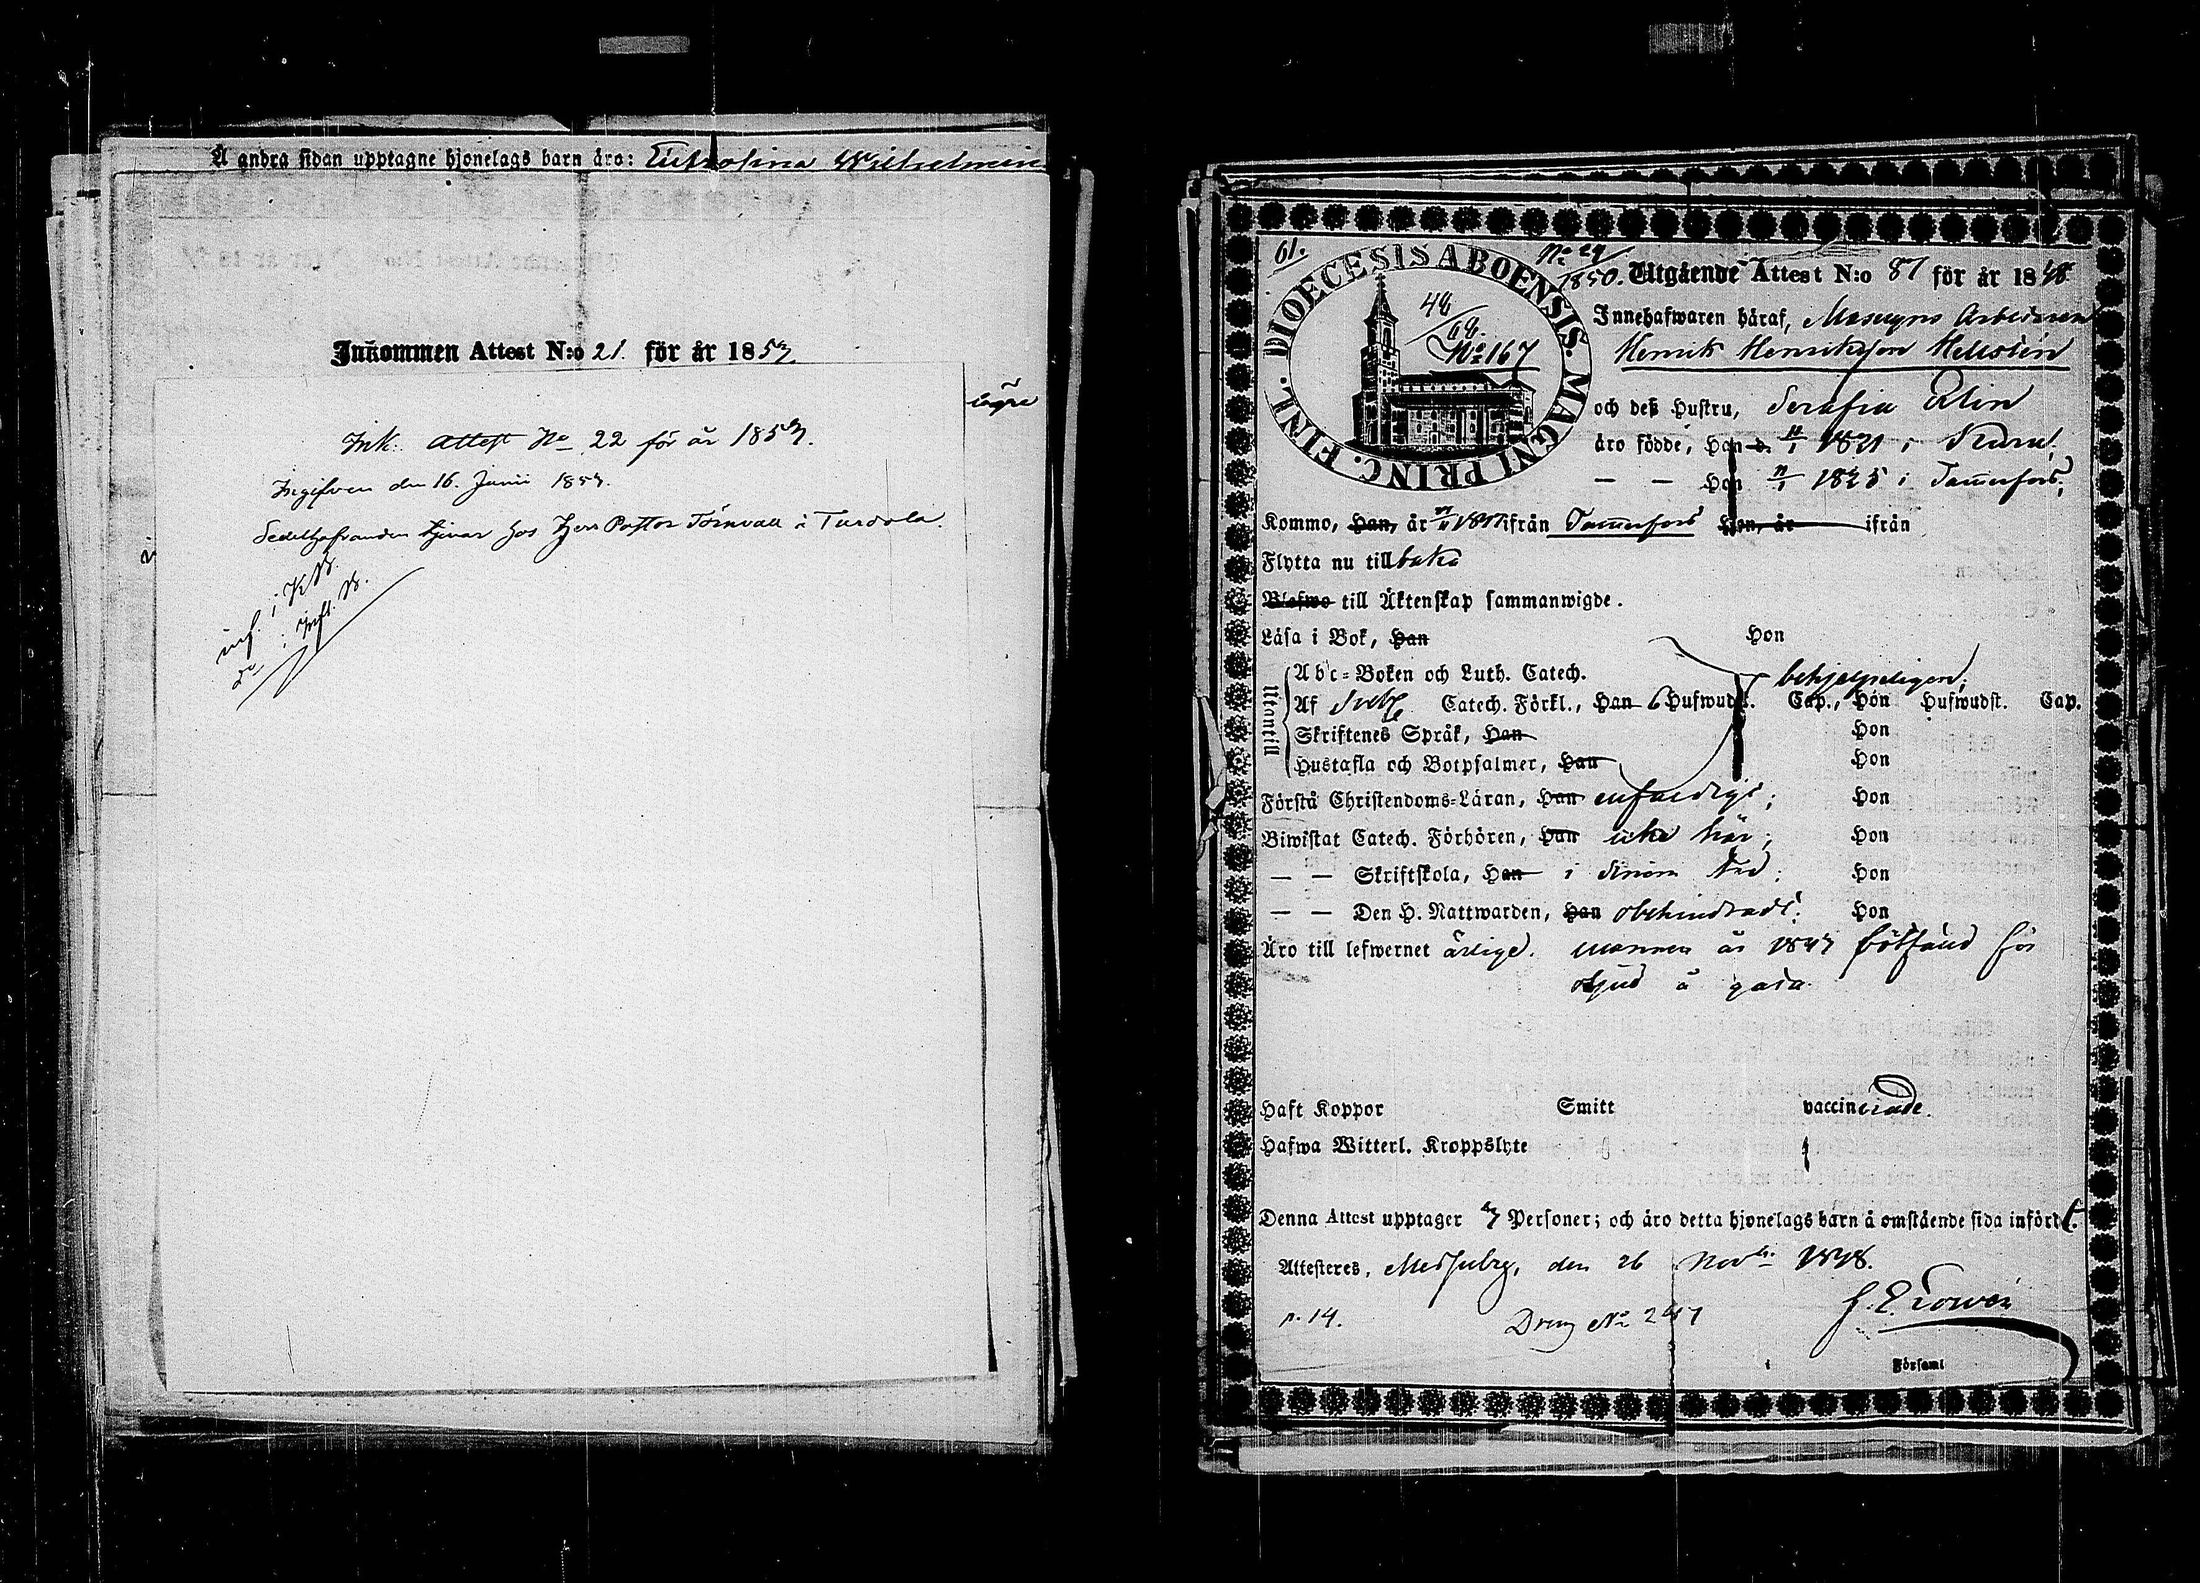 Å andra sidan upptagne hjonelags barn äro: Eufrosina Wilhelmina
Inkommen Attest N:o 21. för år 1857.
Ink. Attest No 22 för år 1857.
Ingifven den 16. Junii 1857.
Sedelhafvanden tjenar hos Herr Pastor Törnvall i Turdola.
inf. i KB.
Do i Infl. B.
61.
No 29
1850. Utgående Attest N:o 87 för år 1848
DIOECESIS ABOENSIS. MAGNI PRINC. FINL.
48
68.
No 167
Innehafwaren häraf, Masugns Arbetaren
Henrik Henriksson Hellstén
och deß Hustru, Serafia Elin
äro födde, Han d. 11/1 1821 i Kuru;
— — Hon 11/1 1825 i Tammerfors;
Kommo, Han, år 1847 ifrån Tammerfors Hon, år ifrån
Flytta nu tillbaka
Blefwo till Äktenskap sammanwigde.
Läsa i Bok, Han Hon
Utantill
Abc-Boken och Luth. Catech. behjelpeligen;
Af Sveb. Catech. Förkl., Han 6 Hufwudst. Cap., Hon Hufwudst. Cap.
Skriftenes Språk, Han Hon
Hustafla och Botpsalmer, Han Hon
Förstå Christendoms-Läran, Han enfaldigt; Hon
Biwistat Catech. Förhören, Han icke här; Hon
— — Skriftskola, Han i sinom tid; Hon
— — Den H. Nattwarden, Han obehindradt; Hon
Äro till lefwernet ärlige. mannen är 1847 bötfäld för
oljud å gata.
Haft Koppor Smitt vaccinerade.
Hafwa Witterl. Kroppslyte
Denna Attest upptager Personer; och äro detta hjonelags barn å omstående sida införde.
Attesteres, den 26 Novbr 1848.
p. 14. No 247
Församl